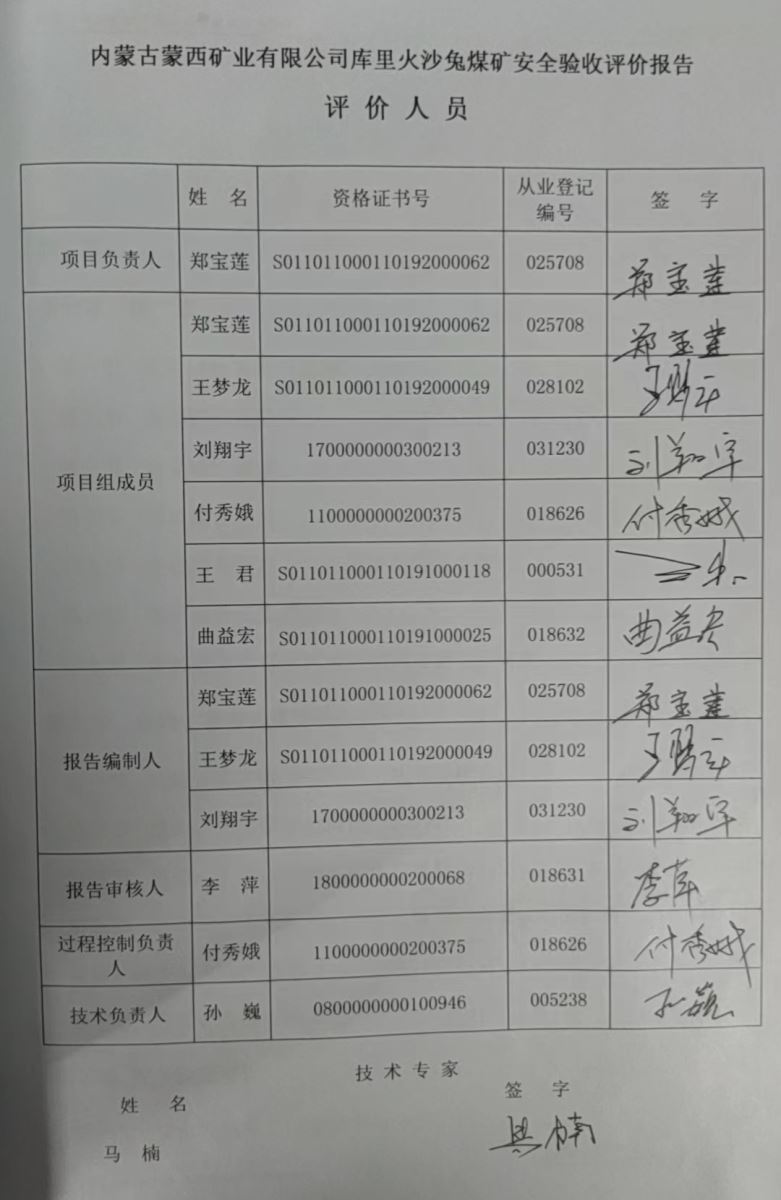 内蒙古蒙西矿业有限公司库里火沙兔煤矿安全验收评价报告
评 价 人 员
姓 名 资格证书号 从业登记编号 签 字
项目负责人 郑宝莲 S011011000110192000062 025708 郑宝莲
项目组成员 郑宝莲 S011011000110192000062 025708 郑宝莲
王梦龙 S011011000110192000049 028102
刘翔宇 1700000000300213 031230 刘翔宇
付秀娥 1100000000200375 018626 付秀娥
王 君 S011011000110191000118 000531
曲益宏 S011011000110191000025 018632 曲益宏
报告编制人 郑宝莲 S011011000110192000062 025708 郑宝莲
王梦龙 S011011000110192000049 028102
刘翔宇 1700000000300213 031230 刘翔宇
报告审核人 李 萍 1800000000200068 018631 李萍
过程控制负责人 付秀娥 1100000000200375 018626 付秀娥
技术负责人 孙 巍 0800000000100946 005238 孙巍
技 术 专 家
姓 名 签 字
马 楠 马楠